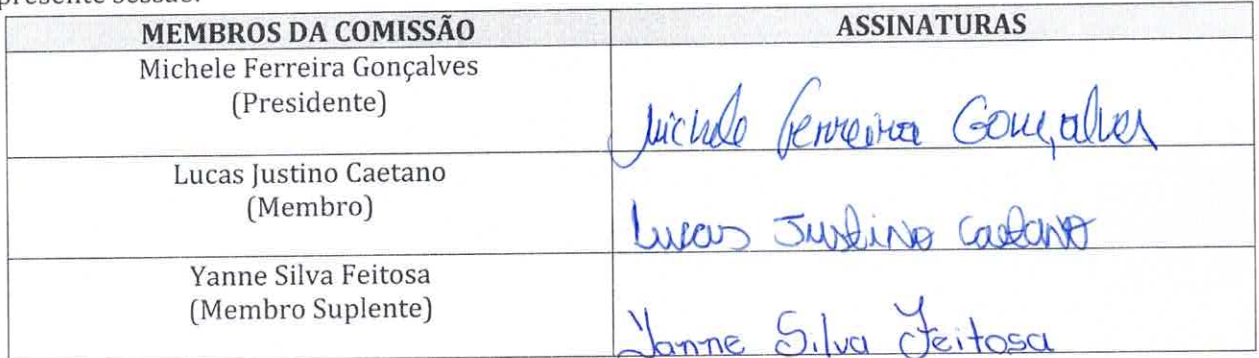 presente sessão.
MEMBROS DA COMISSÃO
ASSINATURAS
Michele Ferreira Gonçalves
(Presidente)
Michele Ferreira Gonçalves
Lucas Justino Caetano
(Membro)
Lucas Justino Caetano
Yanne Silva Feitosa
(Membro Suplente)
Yanne Silva Feitosa